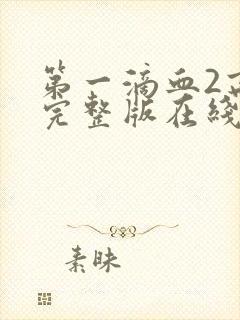 第一滴血2
完整版在线
素昧